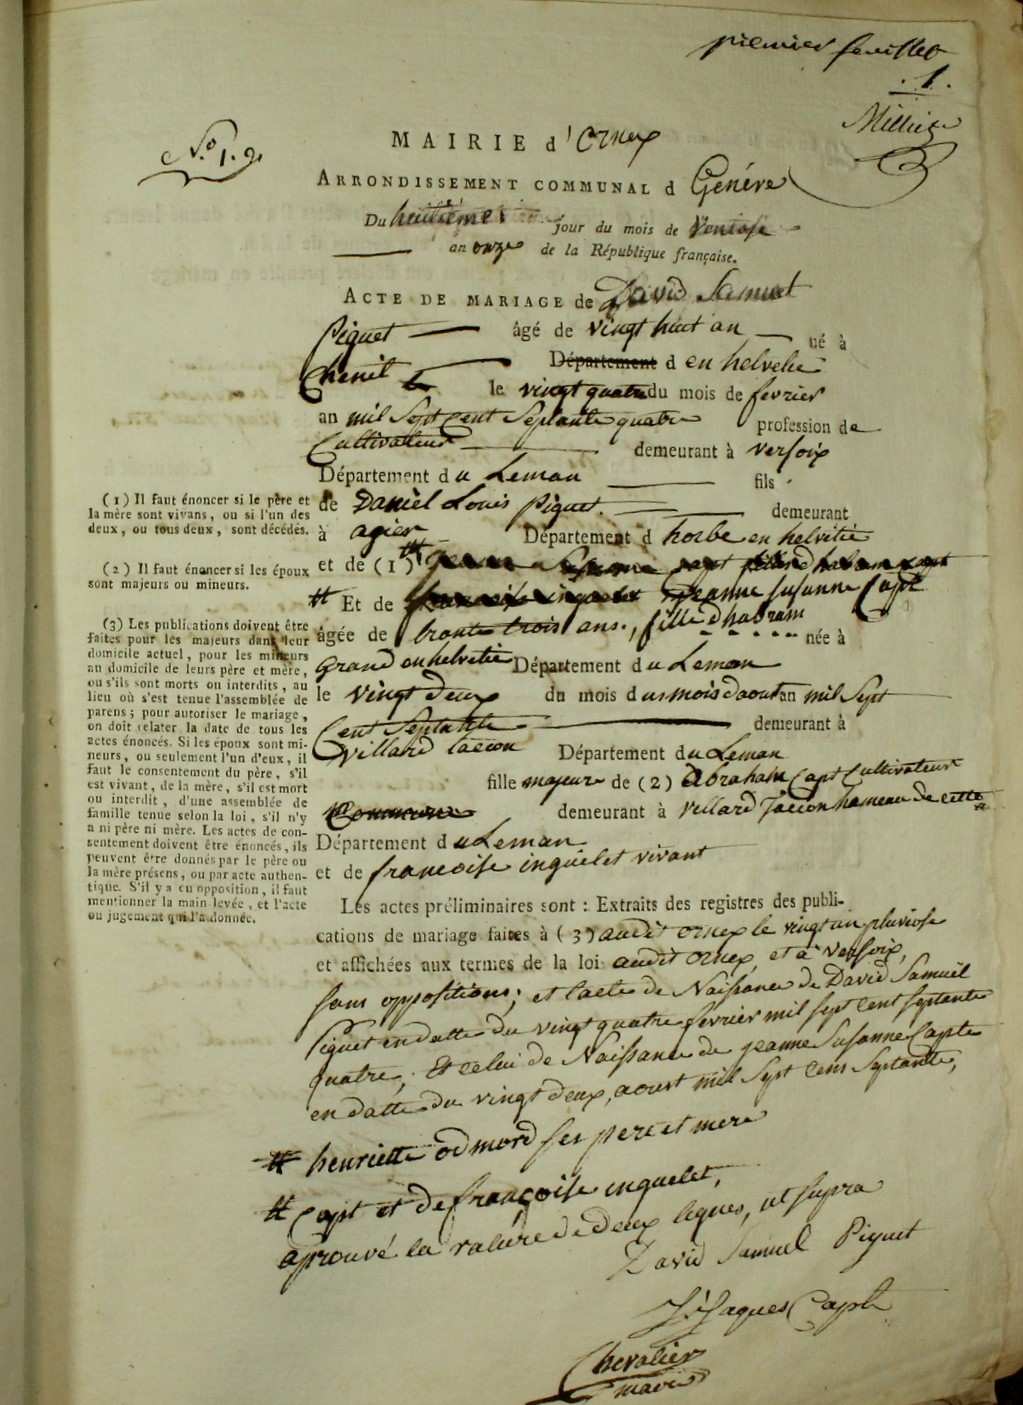 premier feuillet
.1.
Milliet
N.o 1.er
MAIRIE d'Ornex
ARRONDISSEMENT COMMUNAL d Genéve
Du huitième jour du mois de Ventose
an onze de la République française.
ACTE DE MARIAGE de David Samuel
Piquet âgé de vingt huit an né à
Chenit Département d en helvetie
le vingt quatre du mois de fevrier
an mil Sept Cent Septante quatre profession de
Cultivateur demeurant à versoix
Département du Leman fils
de Daniel Louis piquet demeurant
à agier Département d horbe en helvitie
et de (1) #
# Et de Jeanne Susanne Capt
âgée de trante trois ans, fille dhabram née à
grand en helvetie Département du Leman
le vingt deux du mois d un mois daoust an mil Sept
Cent Septante demeurant à
villard tacon Département du Leman
fille majeure de (2) abraham Capt Cultivateur
Commune demeurant à villard Taccon hameau de cette
Département du Leman
et de francoise inquelet vivant
Les actes préliminaires sont : Extraits des registres des publi-
cations de mariage faites à (3) audit ornex le vingt un pluviose
et affichées aux termes de la loi audit ornex, et a versoix,
sans oppositions; et lacte de Naissance de David Samuel
Piquet en datte du vingt quatre fevrier mil sept Cent septante
quatre, Et celui de Naissance de jeanne Susanne Capte
en datte du vingt deux, aoust mil Sept Cens Septante,
# henriette odmord ses pere et mere
# Capt et de françoise inquelet,
aprouvé la rature de deux lignes, ut supra
David Samuel Piguet
J. Jaques Capt
Chevalier
maire
(1) Il faut énoncer si le père et
la mère sont vivans, ou si l'un des
deux, ou tous deux, sont décédés.
(2) Il faut énoncer si les époux
sont majeurs ou mineurs.
(3) Les publications doivent être
faites pour les majeurs dans leur
domicile actuel, pour les mineurs
au domicile de leurs père et mère,
ou s'ils sont morts ou interdits, au
lieu où s'est tenue l'assemblée de
parens; pour autoriser le mariage,
on doit relater la date de tous les
actes énoncés. Si les époux sont mi-
neurs, ou seulement l'un d'eux, il
faut le consentement du père, s'il
est vivant, de la mère, s'il est mort
ou interdit, d'une assemblée de
famille tenue selon la loi, s'il n'y
a ni père ni mère. Les actes de con-
sentement doivent être énoncés, ils
peuvent être donnés par le père ou
la mère présens, ou par acte authen-
tique. S'il y a eu opposition, il faut
mentionner la main levée, et l'acte
ou jugement qui l'a donnée.